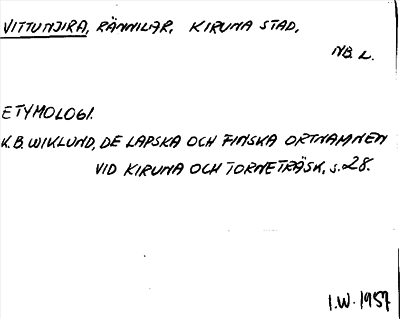 VITTUNJIRA, RÄNNILAR, KIRUNA STAD,
NB. L.
ETYMOLOGI.
K.B. WIKLUND, DE LAPSKA OCH FINSKA ORTNAMNEN
VID KIRUNA OCH TORNETRÄSK, s. 28.
I.W. 1957